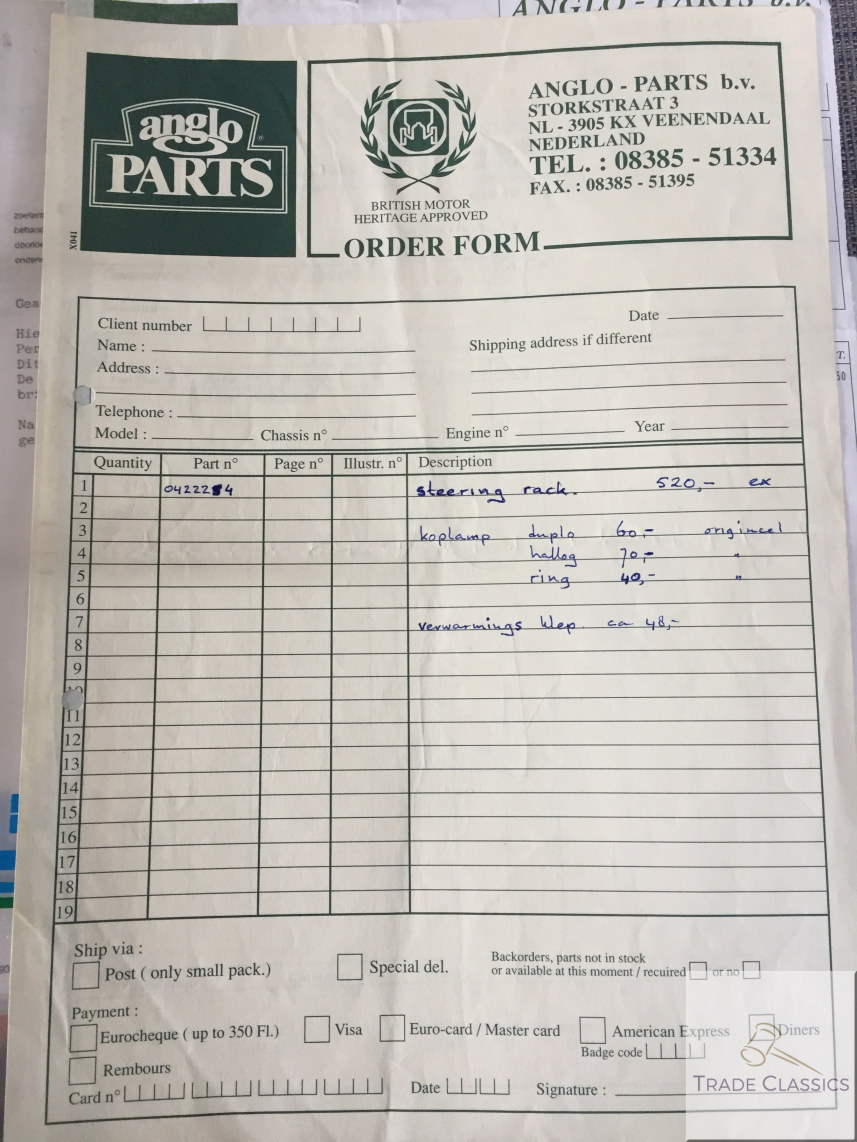 ANGLO - PARTS b.v.
anglo
PARTS
X041
BRITISH MOTOR
HERITAGE APPROVED
ANGLO - PARTS b.v.
STORKSTRAAT 3
NL - 3905 KX VEENENDAAL
NEDERLAND
TEL. : 08385 - 51334
FAX. : 08385 - 51395
ORDER FORM
Client number
Date
Name :
Shipping address if different
Address :
Telephone :
Model : Chassis n° Engine n° Year
Quantity Part n° Page n° Illustr. n° Description
1 0422254 steering rack. 520,- ex
2
3 koplamp duplo 60,- origineel
4 hallog 70,- "
5 ring 40,- "
6
7 verwarmings klep. ca 48,-
8
9
10
11
12
13
14
15
16
17
18
19
Ship via :
Post ( only small pack.) Special del.
Backorders, parts not in stock
or available at this moment / recuired or no
Payment :
Eurocheque ( up to 350 Fl.) Visa Euro-card / Master card American Express Diners
Badge code
Rembours
Card n° Date Signature :
TRADE CLASSICS